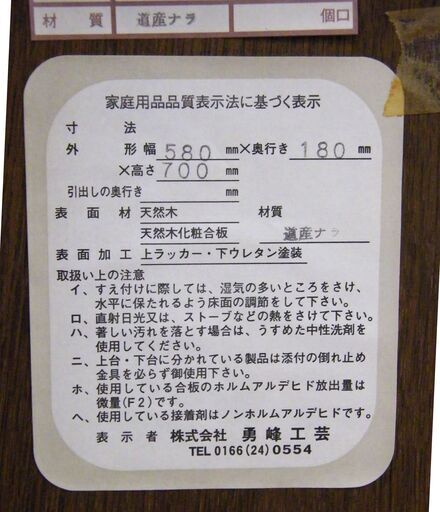 材 質 道産ナラ 個口
家庭用品品質表示法に基づく表示
寸 法
外 形 幅 580 mm×奥行き 180 mm
×高さ 700 mm
引出しの奥行き mm
表 面 材 天然木 材質
天然木化粧合板 道産ナラ
表 面 加 工 上ラッカー・下ウレタン塗装
取扱い上の注意
イ、すえ付けに際しては、湿気の多いところをさけ、
水平に保たれるよう床面の調節をして下さい。
ロ、直射日光又は、ストーブなどの熱をさけて下さい。
ハ、著しい汚れを落とす場合は、うすめた中性洗剤を
使用してください。
ニ、上台・下台に分かれている製品は添付の倒れ止め
金具を必らず御使用下さい。
ホ、使用している合板のホルムアルデヒド放出量は
微量(F2)です。
ヘ、使用している接着剤はノンホルムアルデヒドです。
表 示 者 株式会社 勇峰工芸
TEL 0166(24)0554